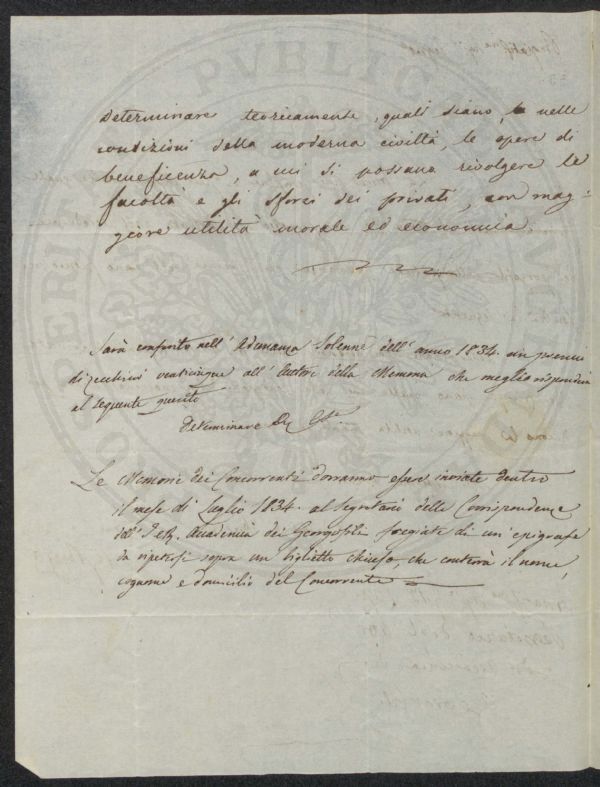 Determinare teoricamente, quali siano, nelle
condizioni della moderna civiltà, le opere di
beneficenza, a cui si possano rivolgere le
facoltà e gli sforzi dei privati, con mag-
giore utilità morale ed economica.
Sarà conferito nell' Adunanza Solenne dell' anno 1834. un premio
di zecchini venticinque all' Autore della Memoria che meglio risponderà
al seguente quesito
Determinare &c
Le Memorie dei Concorrenti dovranno esser inviate dentro
il mese di Luglio 1834. al Segretario delle Corrispondenze
dell' I e R. Accademia dei Georgofili fregiate di un' epigrafe
da ripetersi sopra un biglietto chiuso, che conterrà il nome,
cognome e domicilio del Concorrente